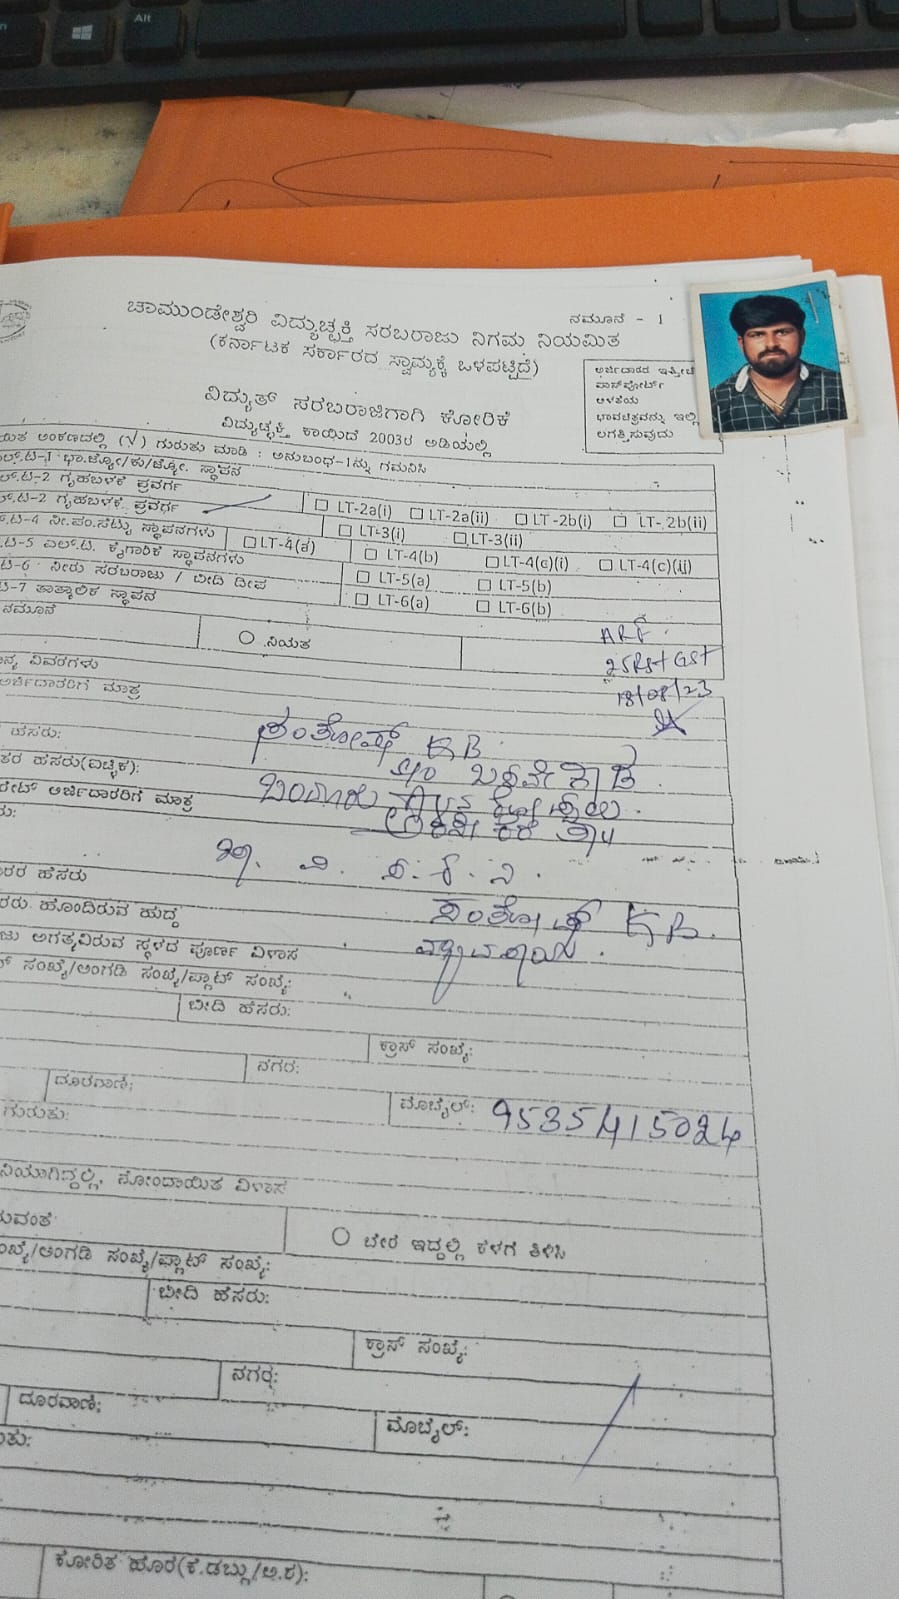 Alt
ನಮೂನೆ - 1
ಚಾಮುಂಡೇಶ್ವರಿ ವಿದ್ಯುಚ್ಛಕ್ತಿ ಸರಬರಾಜು ನಿಗಮ ನಿಯಮಿತ
(ಕರ್ನಾಟಕ ಸರ್ಕಾರದ ಸ್ವಾಮ್ಯಕ್ಕೆ ಒಳಪಟ್ಟಿದೆ)
ಅರ್ಜಿದಾರರ ಇತ್ತೀಚಿ
ಪಾಸ್‌ಪೋರ್ಟ್
ಅಳತೆಯ
ಭಾವಚಿತ್ರವನ್ನು ಇಲ್ಲಿ
ಲಗತ್ತಿಸುವುದು
ವಿದ್ಯುತ್ ಸರಬರಾಜಿಗಾಗಿ ಕೋರಿಕೆ
ವಿದ್ಯುಚ್ಛಕ್ತಿ ಕಾಯಿದೆ 2003ರ ಅಡಿಯಲ್ಲಿ
ಅಂಕಣದಲ್ಲಿ (√) ಗುರುತು ಮಾಡಿ : ಅನುಬಂಧ-1ನ್ನು ಗಮನಿಸಿ
ಲ್.ಟಿ-1 ಭಾ.ಜ್ಯೋ/ಕು/ಜ್ಯೋ. ಸ್ಥಾಪನ
ಲ್.ಟಿ-2 ಗೃಹಬಳಕೆ ಪ್ರವರ್ಗ
ಲ್.ಟಿ-2 ಗೃಹಬಳಕೆ ಪ್ರವರ್ಗ ☐ LT-2a(i) ☐ LT-2a(ii) ☐ LT-2b(i) ☐ LT-2b(ii)
.ಟಿ-4 ನೀ.ಪಂ.ಸೆಟ್ಟು ಸ್ಥಾಪನಗಳು ☐ LT-3(i) ☐ LT-3(ii)
.ಟಿ-5 ಎಲ್.ಟಿ. ಕೈಗಾರಿಕೆ ಸ್ಥಾಪನಗಳು ☐ LT-4(a) ☐ LT-4(b) ☐ LT-4(c)(i) ☐ LT-4(c)(ii)
ಟಿ-6 ನೀರು ಸರಬರಾಜು / ಬೀದಿ ದೀಪ ☐ LT-5(a) ☐ LT-5(b)
ಟಿ-7 ತಾತ್ಕಾಲಿಕ ಸ್ಥಾಪನ ☐ LT-6(a) ☐ LT-6(b)
ನಮೂನೆ
ನಿಯತ
ARF
25Rs+GST
18/08/23
ವಿವರಗಳು
ಅರ್ಜಿದಾರಿಗೆ ಮಾತ್ರ
ಹೆಸರು: ಸಂತೋಷ್ KB
ತರ ಹೆಸರು(ಐಚ್ಛಿಕ): S/o
ರೇಟ್ ಅರ್ಜಿದಾರರಿಗೆ ಮಾತ್ರ
ರು:
ರರ ಹೆಸರು
ರರು ಹೊಂದಿರುವ ಹುದ್ದೆ ಸಂತೋಷ್ KB.
ಜು ಅಗತ್ಯವಿರುವ ಸ್ಥಳದ ಪೂರ್ಣ ವಿಳಾಸ
ಸಂಖ್ಯೆ/ಅಂಗಡಿ ಸಂಖ್ಯೆ/ಪ್ಲಾಟ್ ಸಂಖ್ಯೆ:
ಬೀದಿ ಹೆಸರು:
ಕ್ರಾಸ್ ಸಂಖ್ಯೆ:
ನಗರ:
ದೂರವಾಣಿ:
ಮೊಬೈಲ್: 9535415024
ಗುರುತು:
ನಿಯಾಗಿದ್ದಲ್ಲಿ, ನೋಂದಾಯಿತ ವಿಳಾಸ
ರುವಂತೆ
ಬೇರೆ ಇದ್ದಲ್ಲಿ ಕೆಳಗೆ ತಿಳಿಸಿ
ಂಖ್ಯೆ/ಅಂಗಡಿ ಸಂಖ್ಯೆ/ಪ್ಲಾಟ್ ಸಂಖ್ಯೆ:
ಬೀದಿ ಹೆಸರು:
ಕ್ರಾಸ್ ಸಂಖ್ಯೆ:
ನಗರ:
ದೂರವಾಣಿ:
ಮೊಬೈಲ್:
ತು:
ಕೋರಿತ ಹೊರೆ(ಕಿ.ಡಬ್ಲ್ಯು/ಅ.ಶ):